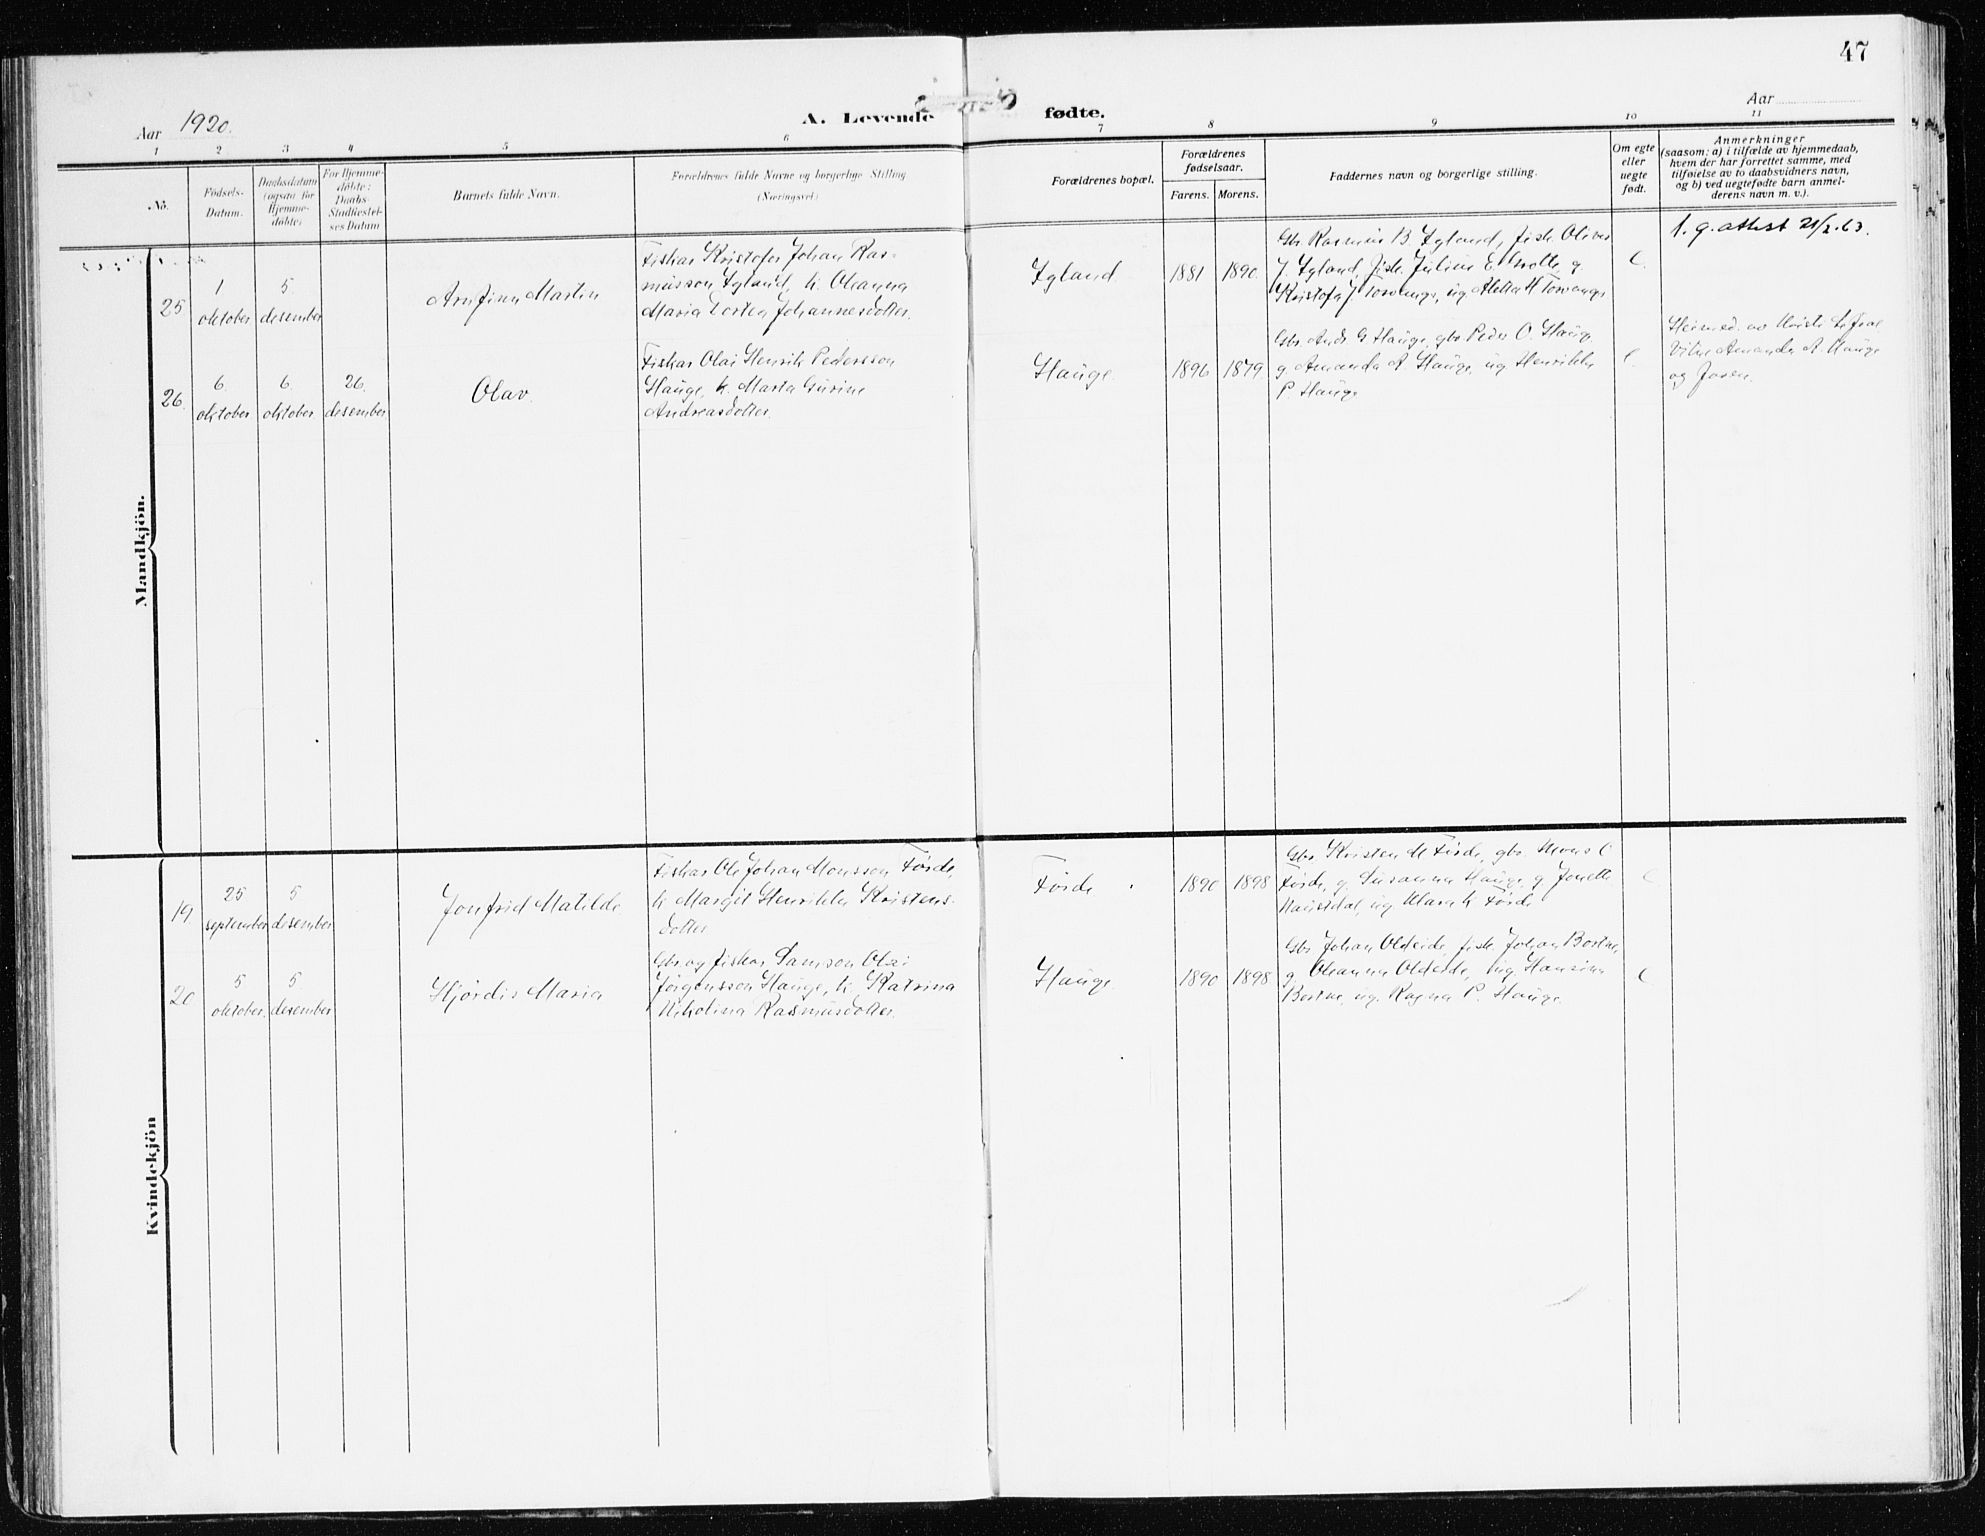 47
Aar 1920.
A. Levende fødte.
Aar
1 2 3 4 5 6 7 8 9 10 11
No.
Fødsels-
Datum.
Daabsdatum
(ogsaa for
Hjemme-
døbte)
For Hjemme-
døbte:
Daabs-
Stadfæstel-
ses Datum
Barnets fulde Navn.
Forældrenes fulde Navne og borgerlige Stilling
(Næringsvei)
Forældrenes bopæl.
Forældrenes
fødselsaar.
Farens. Morens.
Faddernes navn og borgerlige stilling.
Om egte
eller
uegte
født.
Anmerkninger
(saasom: a) i tilfælde av hjemmedaab,
hvem der har forrettet samme, med
tilføielse av to daabsvidners navn,
og b) ved uegtefødte barn anmel-
derens navn m. v.).
Mandkjön.
25
1
oktober
5.
desember
Arnfinn Martin
Fiskar Kristofer Johan Ras-
musson Igland, k. Oleanna
Maria Dortea Johannesdotter.
Igland
1881 1890.
Gbr. Rasmus B. Igland, fisk. Oliver
J. Igland, fisk. Julius E. g.
Kristofa J. Torvanger, ug. Aletta H. Torvanger
e.
1. g. attest 21/2.63.
26.
6.
oktober
6.
oktober.
26.
desember
Olav.
Fiskar Olai Henrik Pedersson
Hauge, k. Marta Gurine
Andreasdotter.
Hauge.
1896 1879.
Gbr. Ands G. Hauge, gbr. Peder O. Hauge,
g. Amanda A. Hauge, ug. Henrikke
P. Hauge
e.
Heimed. av
Vitne Amanda A. Hauge
og
Kvindekjön
19
25
september
5
desember
Jonfrid Matilde
Fiskar Ole Johan Monsson Førde,
k. Margit Henrikke Kristens-
dotter
Førde
1890 1898
Gbr. Kristen M. Førde, gbr. Mons O
Førde, g. Susanna Hauge, g. Jonette
Naustdal, ug. Klara K. Førde
e
20
5
oktober.
5.
desember
Hjørdis Maria
Gbr. og fiskar Samson Olai
Jørgensson Hauge, k. Katrina
Nikolina Rasmusdotter.
Hauge
1890 1898
Gbr Johan Oldeide, fisk. Johan Bortne,
g. Oleanna Oldeide, ug. Hansina
Bortne, ug. Ragna P. Hauge.
e